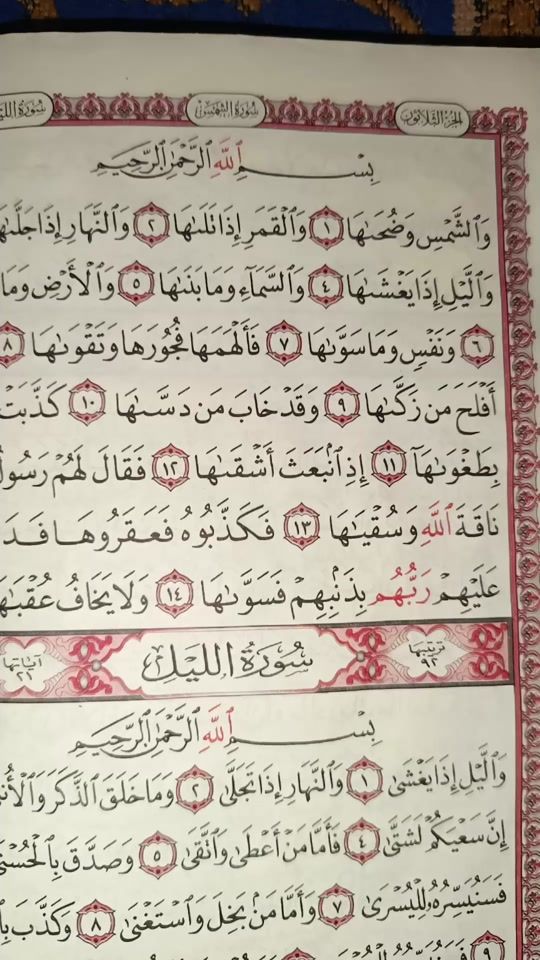 الجزء الثلاثون سورة الشمس سورة
بِسْمِ ٱللَّهِ ٱلرَّحْمَٰنِ ٱلرَّحِيمِ
وَٱلشَّمْسِ وَضُحَىٰهَا ١ وَٱلْقَمَرِ إِذَا تَلَىٰهَا ٢ وَٱلنَّهَارِ إِذَا جَلَّىٰهَا
وَٱلَّيْلِ إِذَا يَغْشَىٰهَا ٤ وَٱلسَّمَآءِ وَمَا بَنَىٰهَا ٥ وَٱلْأَرْضِ وَمَا
٦ وَنَفْسٍ وَمَا سَوَّىٰهَا ٧ فَأَلْهَمَهَا فُجُورَهَا وَتَقْوَىٰهَا ٨
أَفْلَحَ مَن زَكَّىٰهَا ٩ وَقَدْ خَابَ مَن دَسَّىٰهَا ١٠ كَذَّبَتْ
بِطَغْوَىٰهَآ ١١ إِذِ ٱنۢبَعَثَ أَشْقَىٰهَا ١٢ فَقَالَ لَهُمْ رَسُولُ
نَاقَةَ ٱللَّهِ وَسُقْيَٰهَا ١٣ فَكَذَّبُوهُ فَعَقَرُوهَا فَدَ
عَلَيْهِمْ رَبُّهُم بِذَنۢبِهِمْ فَسَوَّىٰهَا ١٤ وَلَا يَخَافُ عُقْبَٰهَا
ترتيبها ٩٢ سُورَةُ اللَّيْلِ آياتها ٢١
بِسْمِ ٱللَّهِ ٱلرَّحْمَٰنِ ٱلرَّحِيمِ
وَٱلَّيْلِ إِذَا يَغْشَىٰ ١ وَٱلنَّهَارِ إِذَا تَجَلَّىٰ ٢ وَمَا خَلَقَ ٱلذَّكَرَ وَٱلْأُنثَ
إِنَّ سَعْيَكُمْ لَشَتَّىٰ ٤ فَأَمَّا مَنْ أَعْطَىٰ وَٱتَّقَىٰ ٥ وَصَدَّقَ بِٱلْحُسْنَىٰ
فَسَنُيَسِّرُهُۥ لِلْيُسْرَىٰ ٧ وَأَمَّا مَنۢ بَخِلَ وَٱسْتَغْنَىٰ ٨ وَكَذَّبَ بِٱ
٩